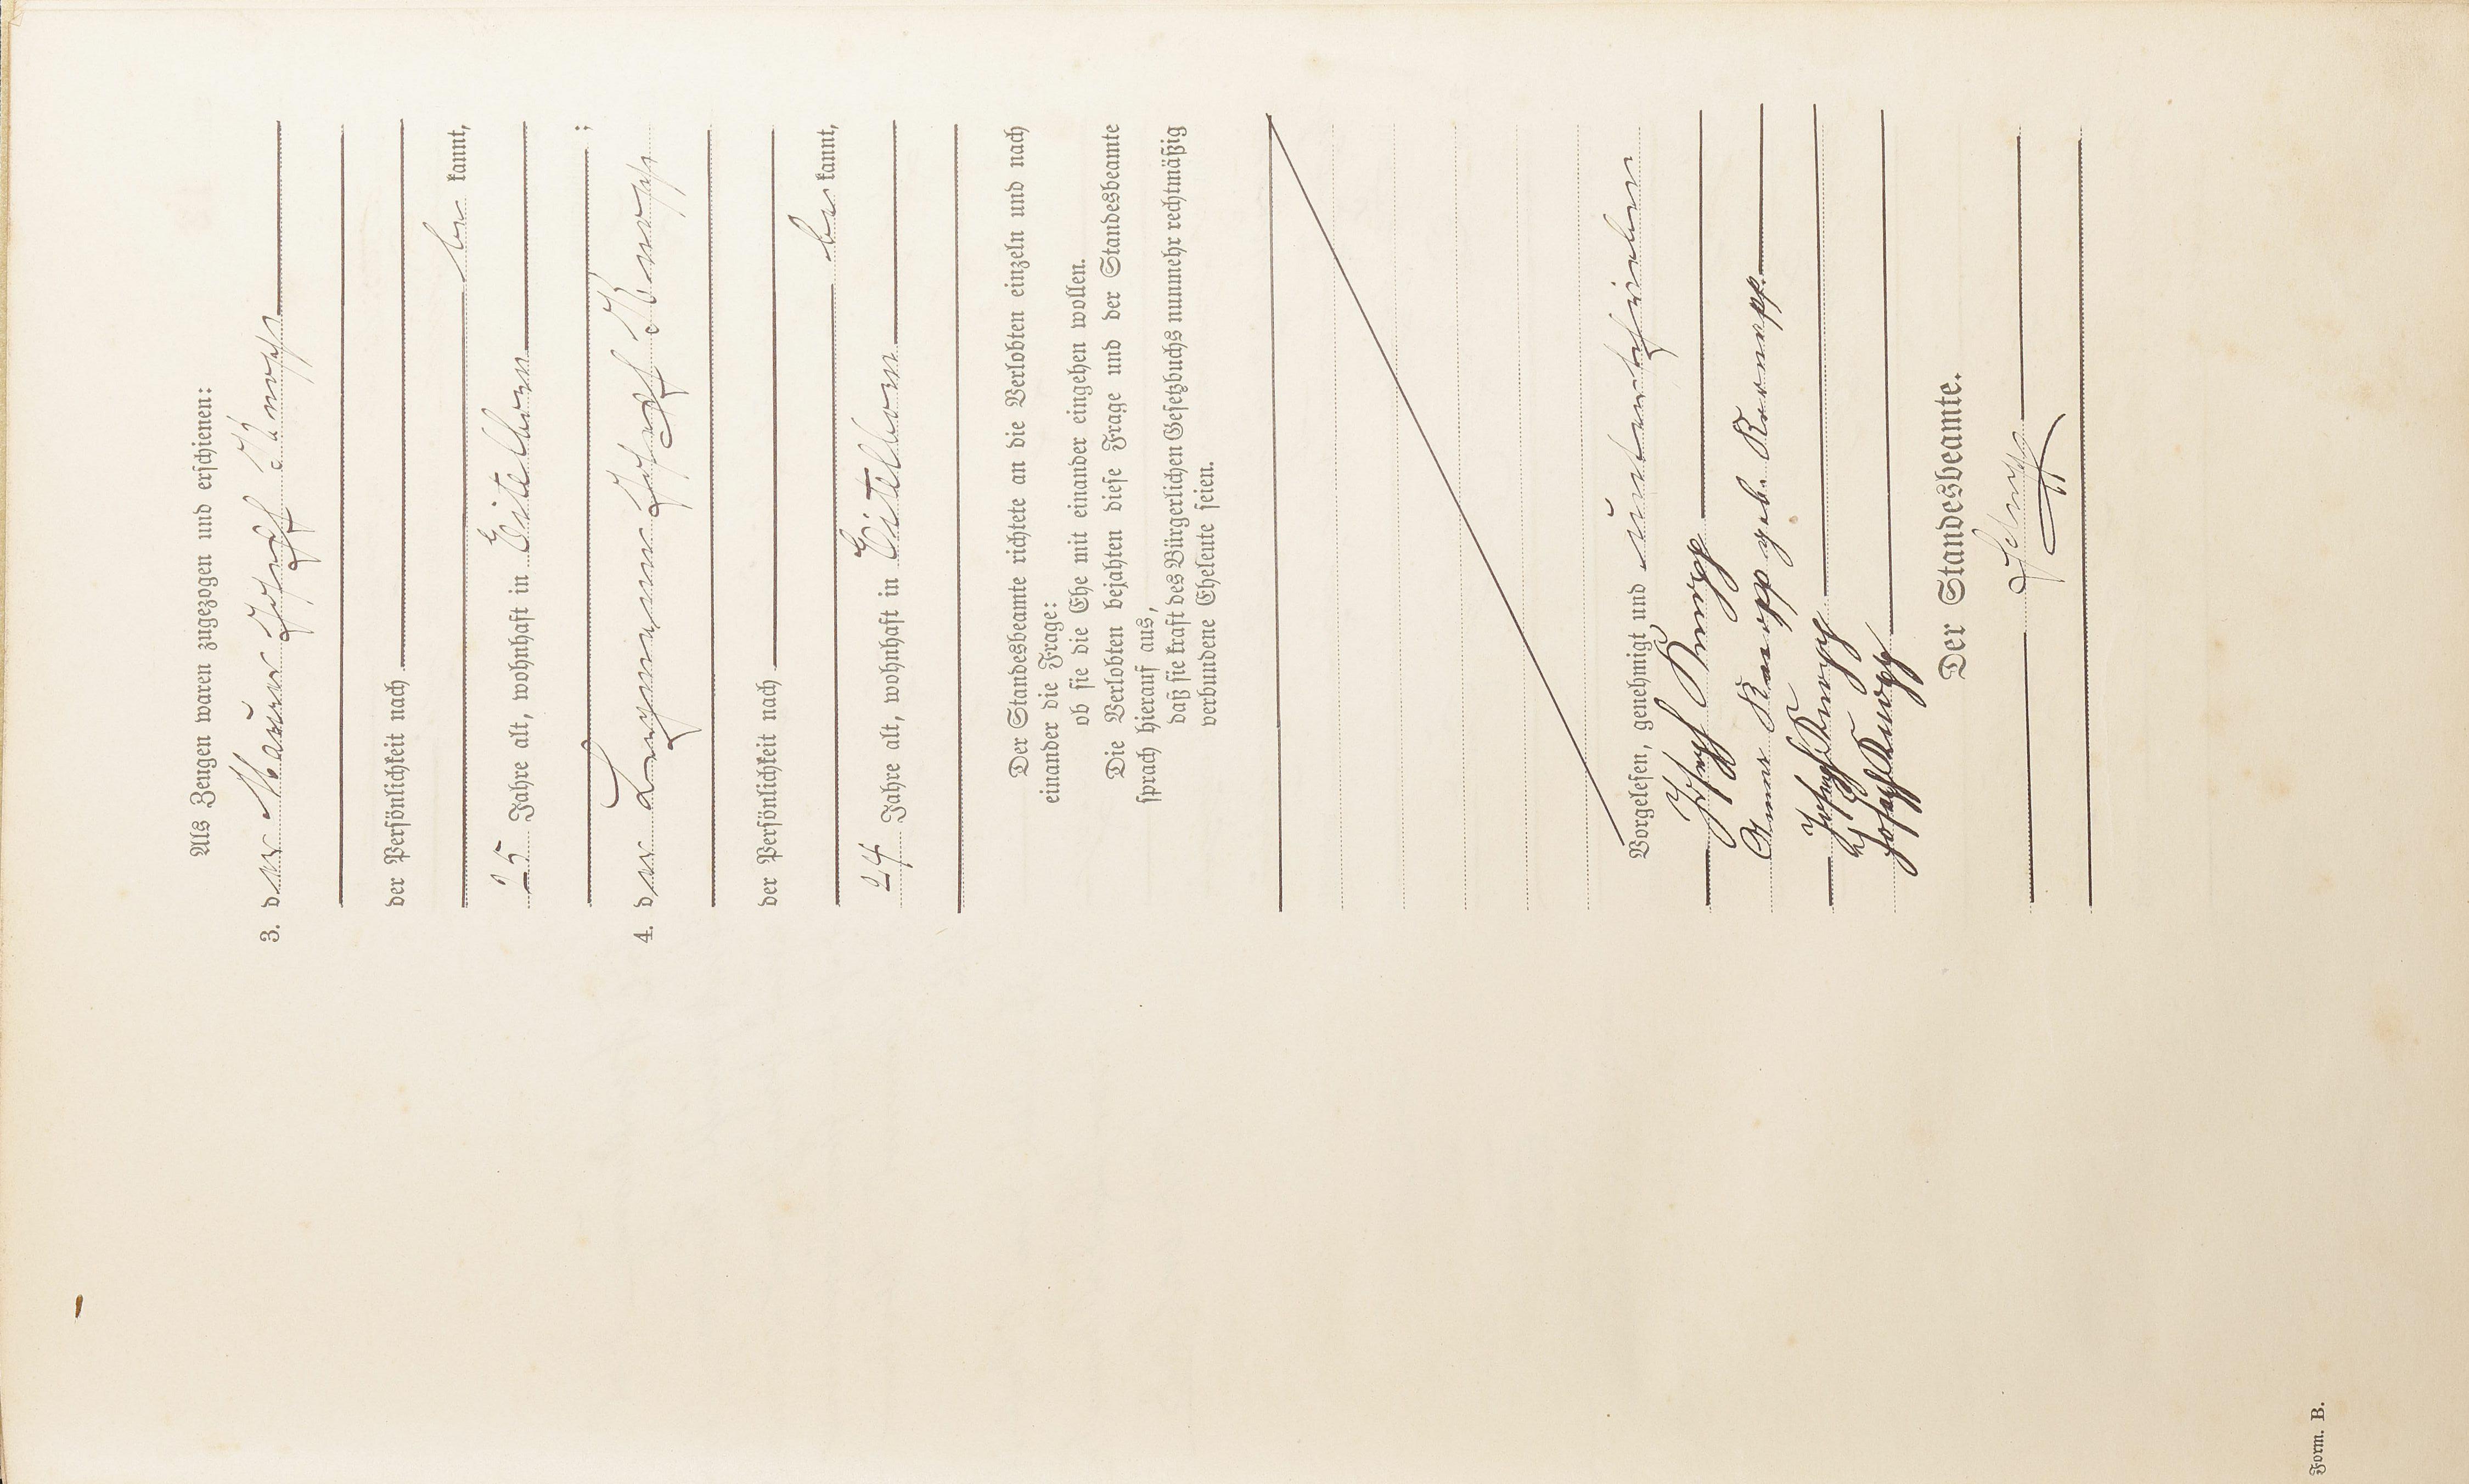 Als Zeugen waren zugezogen und erschienen:
3. der Maurer Josef Knopp
der Persönlichkeit nach
be kannt,
25 Jahre alt, wohnhaft in Eitelborn
;
4. der Josef Knopp
der Persönlichkeit nach
be kannt,
24 Jahre alt, wohnhaft in Eitelborn
Der Standesbeamte richtete an die Verlobten einzeln und nach
einander die Frage:
ob sie die Ehe mit einander eingehen wollen.
Die Verlobten bejahten diese Frage und der Standesbeamte
sprach hierauf aus,
daß sie kraft des Bürgerlichen Gesetzbuchs nunmehr rechtmäßig
verbundene Eheleute seien.
Vorgelesen, genehmigt und unterschrieben
Josef Knopp
Anna Knopp geb. Knopp
Josef Knopp
Josef Knopp
Der Standesbeamte.
Form. B.